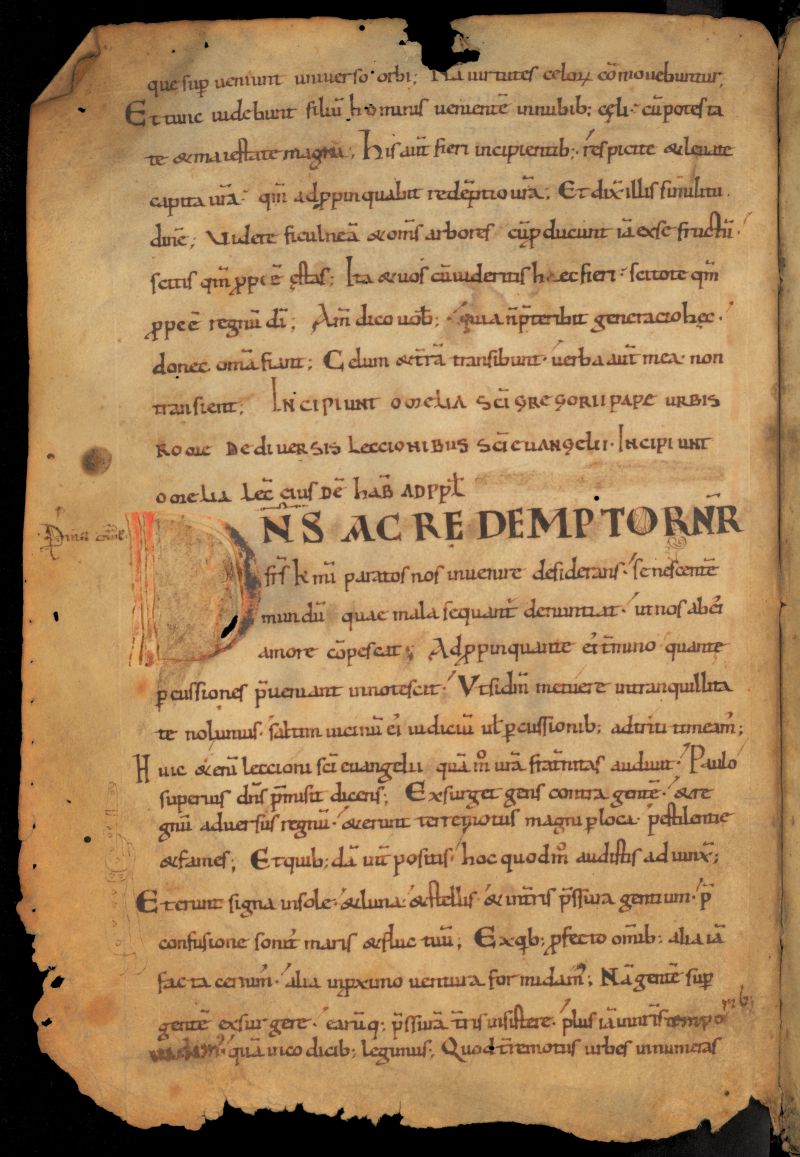 que sup̄ ueniunt uniuerso orbi; Nā uirtutes celoꝝ cōmouebuntur;
Et tunc uidebunt filiū hominis uenientē innubib; cęli cūpotesta
te &maiestate magna; His aut̄ fieri incipientib; respicite &leuate
capita ur̄a qm̄ adꝓpinquabit redēptio ur̄a; Et dix̄ illis similitu
dinē; Videte ficulneā &om̄s arbores cū ꝓducunt iā exse fructū
scitis qm̄ ꝓpe ē ęstas; Ita &uos cū uideritis haec fieri scitote qm̄
ꝓpe ē regnū dī; Am̄ dico uob̄; quia n̄ p̄teribit generacio hęc
donec om̄a fiant; Celum &tr̄a transibunt uerba aut̄ mea non
transient; INCIPIUNT OMELIA SCĪ GREGORII PAPE URBIS
ROME DEDIUERSIS LECCIONIBUS SCĪ EUANGELII INCIPIUNT
OMELIA LEC̄ EIUS DĒ HAB̄ AD PP̄L
DN̄S AC REDEMPTOR NR̄
fr̄s km̄i paratos nos inuenire desiderans senescentē
mundū quae mala sequant̄ denuntiat ut nos abei
amore cōpescat; Adꝓpinquante ei t̄mino quante
ꝑcussiones p̄ueniant innotescit Vt sidm̄ metuere intranquillita
te nolumus saltim uicinū ei iudiciū ul̄ ꝑcussionib; adtriti timeam̄;
Huic &enī leccioni scī euangelii quā m̊ ur̄a frat̄nitas audiuit Paulo
superius dn̄s p̄misit dicens; Exsurget gens contra gentē &re
gnū aduersus regnū &erunt terremotus magni ꝑloca pestilentie
&fames; Et quib;dā int̄positis hoc quodm̊ audistis adiunx̄;
Et erunt signa insole &luna &stellis &int̄ris p̄ssura gentium p̄
confusione sonit̄ maris &fluctuū; Exq̄b; ꝓfecto omīb; alia iā
facta cernim̄ alia inꝓximo uentura formidam̄; Nā gentē sup̄
gentē exsurgere earūq; p̄ssurā t̄ris insistere plus iā innr̄is tempo rib;
quā incodicib; legimus; Quod t̄remotus urbes innumeras